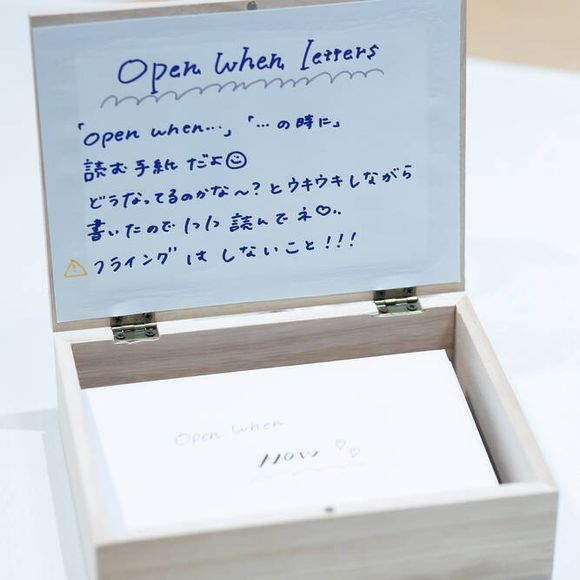 Open when letters
「Open when...」「...の時に」
読む手紙だよ☺
どうなってるのかな〜?とウキウキしながら
書いたので1つ1つ読んでネ♡..
⚠フライングはしないこと!!!
Open when
Now ♡♡